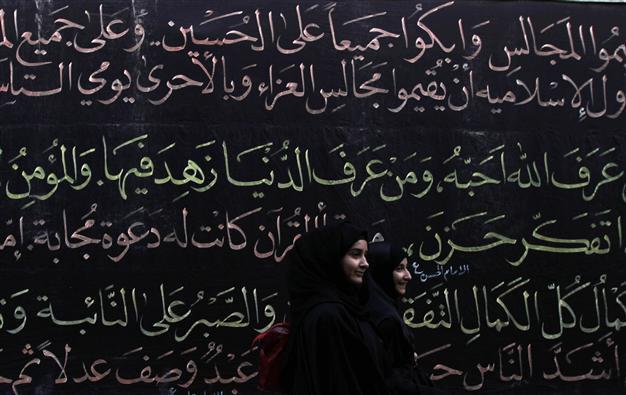 المجالس وابكوا جميعاً على الحسين.. وعلى جميع
الإسلاميه أن يقيموا مجالس العزاء وبالأحرى يومي
عرف الله أحبّه، ومن عرف الدنيا زهد فيها والمؤمن
تفكّر حزن، القرآن كانت له دعوة مجابة.
الإمام الحسن ع
كلّ الكمال والصبر على النائبة
أشدّ الناس عبدٌ وصف عدلاً ثمّ